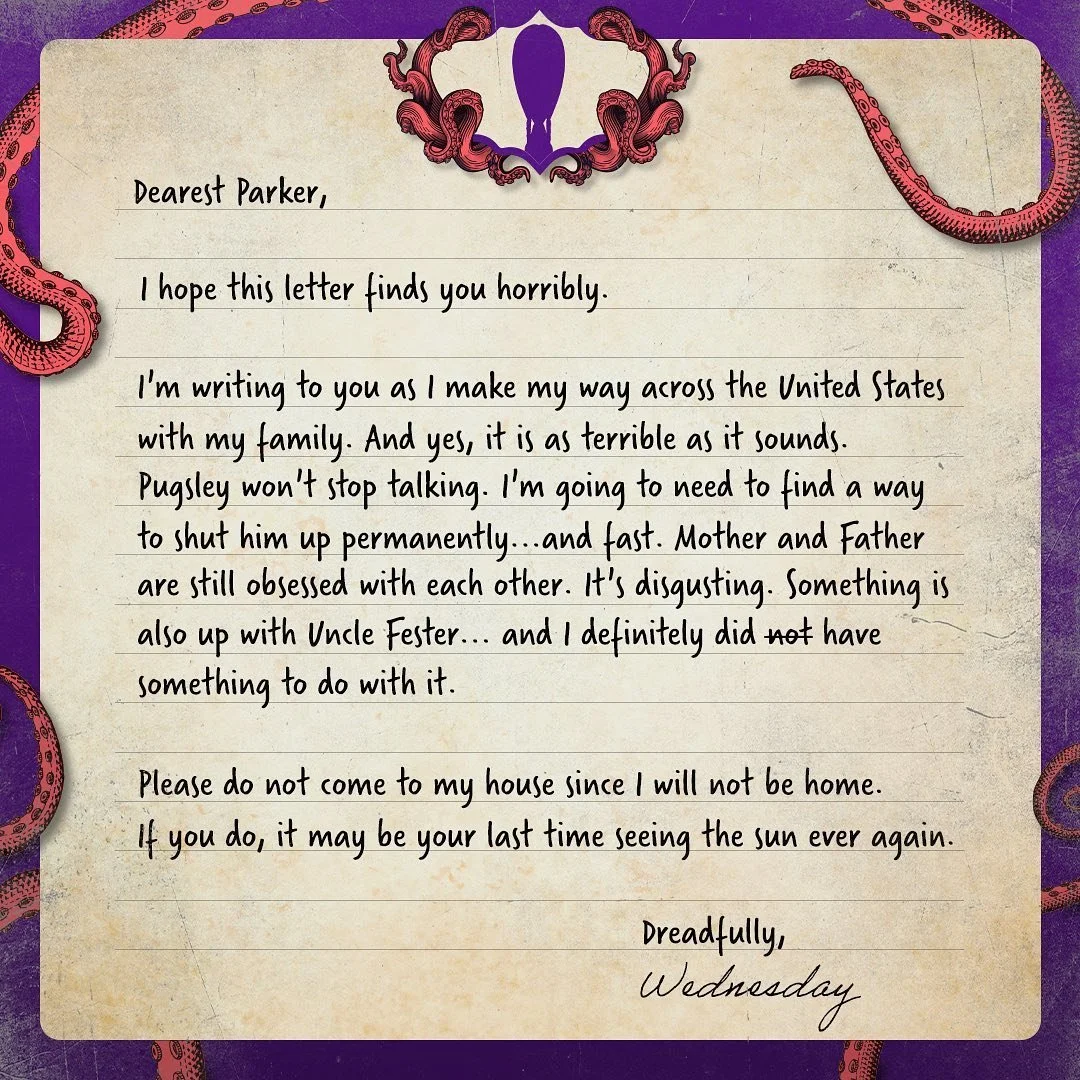 Dearest Parker,
I hope this letter finds you horribly.
I'm writing to you as I make my way across the United States
with my family. And yes, it is as terrible as it sounds.
Pugsley won't stop talking. I'm going to need to find a way
to shut him up permanently...and fast. Mother and Father
are still obsessed with each other. It's disgusting. Something is
also up with Uncle Fester... and I definitely did not have
something to do with it.
Please do not come to my house since I will not be home.
If you do, it may be your last time seeing the sun ever again.
Dreadfully,
Wednesday